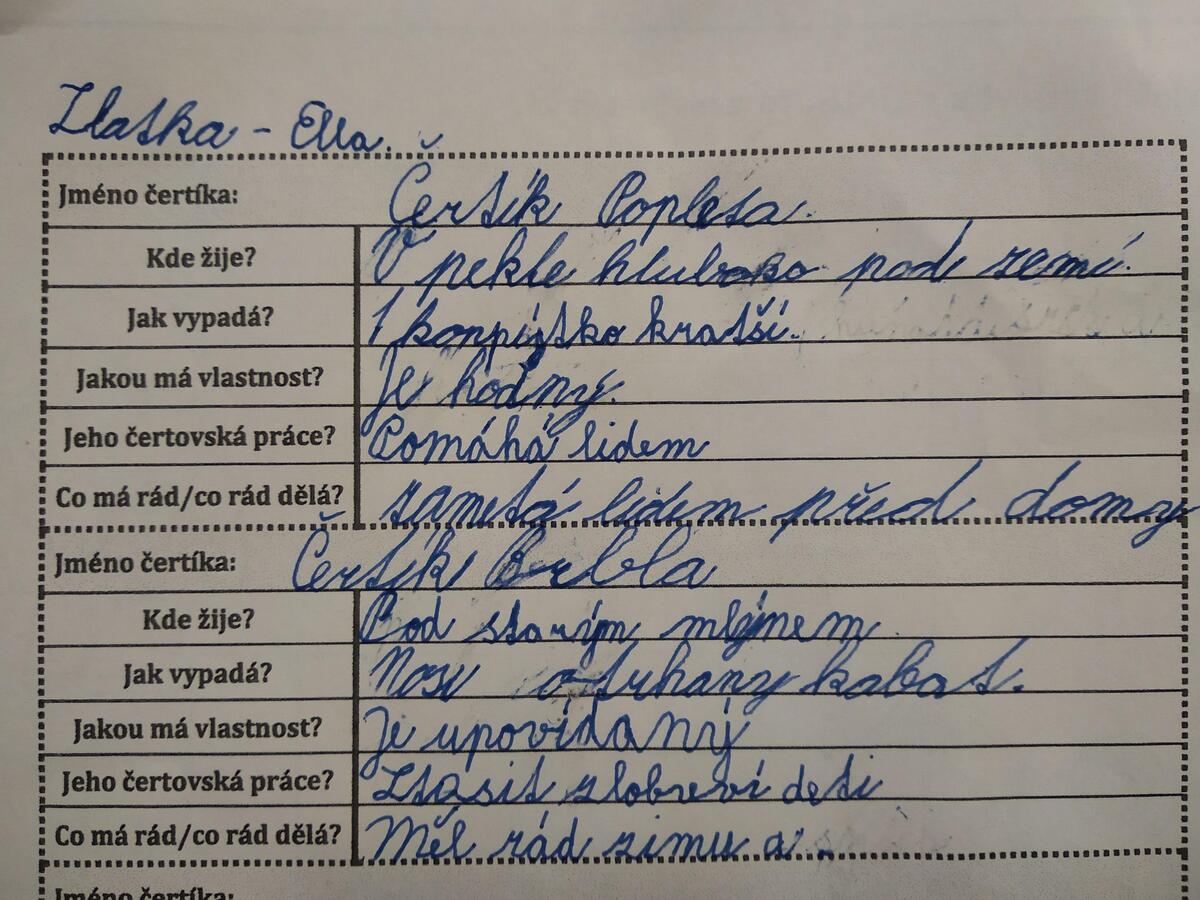 Zlatka - Ella.
Jméno čertíka: Čertík Popleta.
Kde žije? V pekle hluboko pod zemí.
Jak vypadá? 1 koppítko kratší.
Jakou má vlastnost? Je hodný.
Jeho čertovská práce? Pomáhá lidem
Co má rád/co rád dělá? zametá lidem před domy
Jméno čertíka: Čertík Brbla
Kde žije? Pod starým mlýnem
Jak vypadá? Nosí otrhany kabat.
Jakou má vlastnost? Je upovídaný
Jeho čertovská práce? deti
Co má rád/co rád dělá? Měl rád zimu a.
Jméno čertíka: